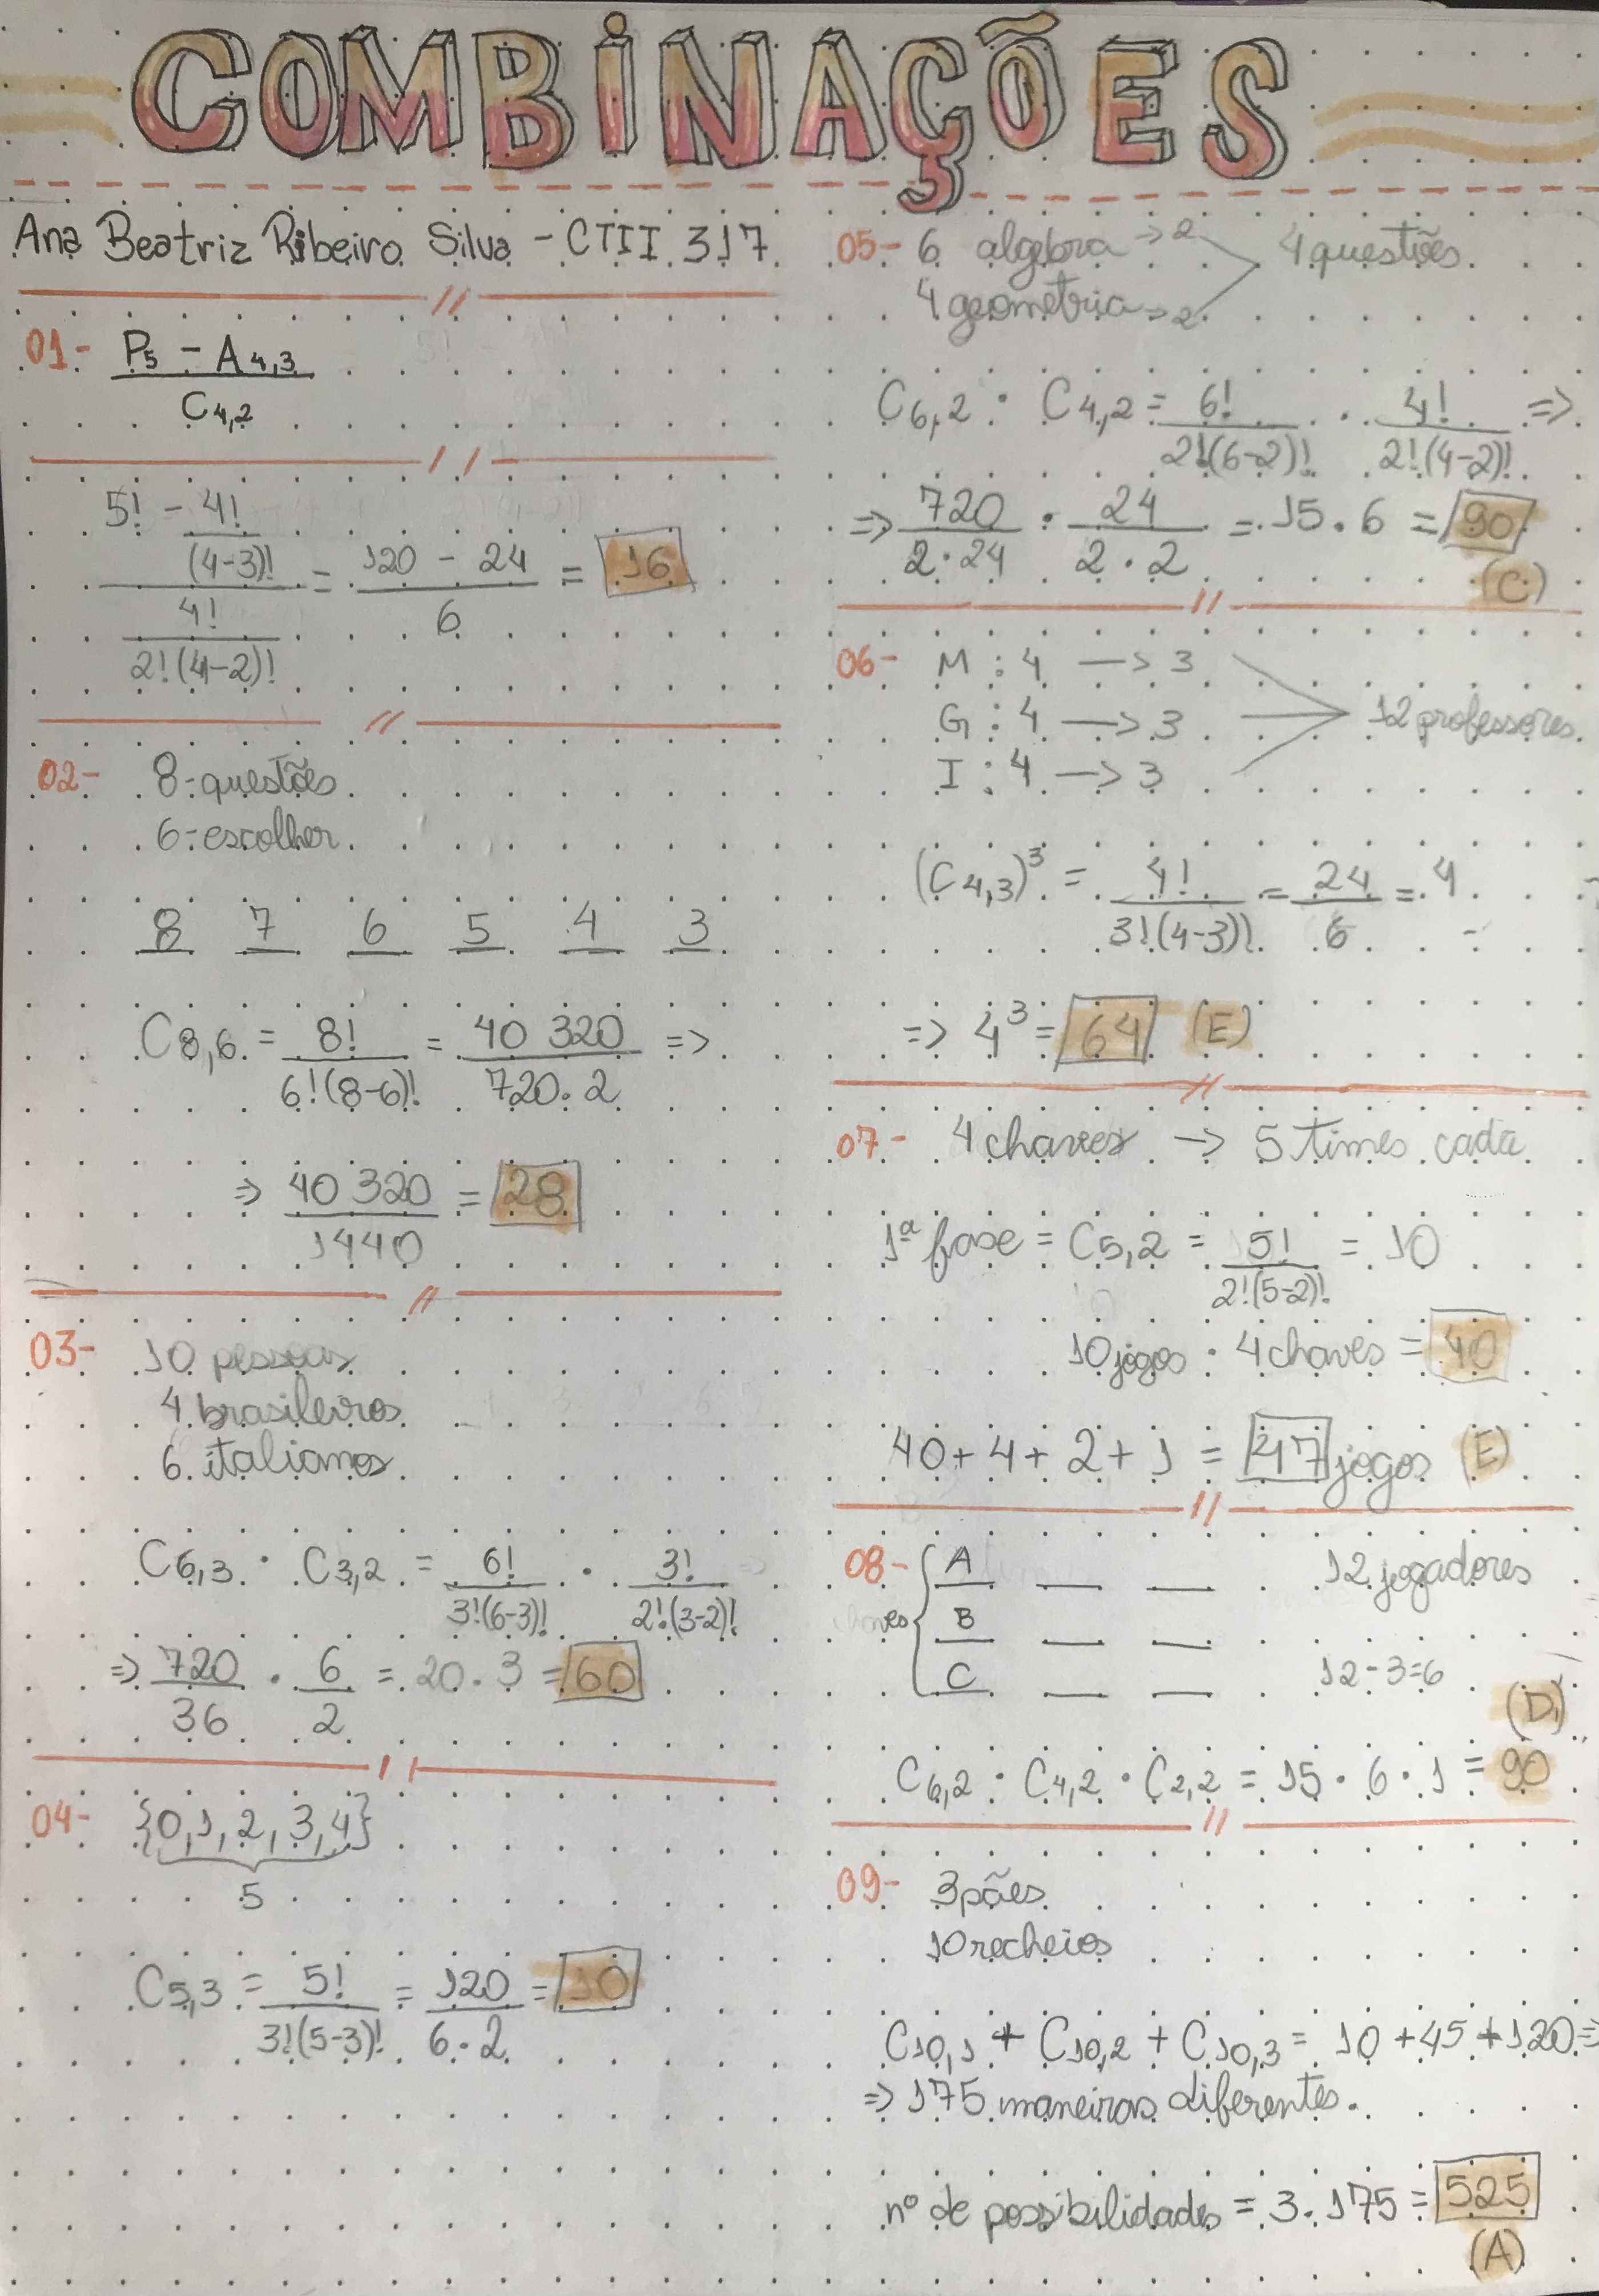 COMBINAÇÕES
Ana Beatriz Ribeiro Silva - CTII 317
01- P5 - A4,3
C4,2
5! - 4!
(4-3)! = 120 - 24 = 16
4! 6
2!(4-2)!
02- 8-questões
6-escolher
8 7 6 5 4 3
C8,6 = 8! = 40 320 =>
6!(8-6)! 720.2
=> 40 320 = 28
1440
03- 10 pessoas
4 brasileiros
6 italianos
C6,3 . C3,2 = 6! . 3!
3!(6-3)! 2!(3-2)!
=> 720 . 6 = 20.3 = 60
36 2
04- {0,1,2,3,4}
5
C5,3 = 5! = 120 = 10
3!(5-3)! 6.2
05- 6 algebra -> 2 4 questões
4 geometria -> 2
C6,2 . C4,2 = 6! . 4! =>
2!(6-2)! 2!(4-2)!
=> 720 . 24 = 15.6 = 90
2.24 2.2
(C)
06- M : 4 -> 3
G : 4 -> 3 12 professores
I : 4 -> 3
(C4,3)³ = 4! = 24 = 4
3!(4-3)! 6
=> 4³ = 64 (E)
07- 4 chaves -> 5 times cada
1ª fase = C5,2 = 5! = 10
2!(5-2)!
10 jogos . 4 chaves = 40
40 + 4 + 2 + 1 = 47 jogos (E)
08- A 12 jogadores
B
C 12-3=6
(D)
C6,2 . C4,2 . C2,2 = 15 . 6 . 1 = 90
09- 3 pães
10 recheios
C10,1 + C10,2 + C10,3 = 10 + 45 + 120 =>
=> 175 maneiras diferentes.
nº de possibilidades = 3.175 = 525
(A)